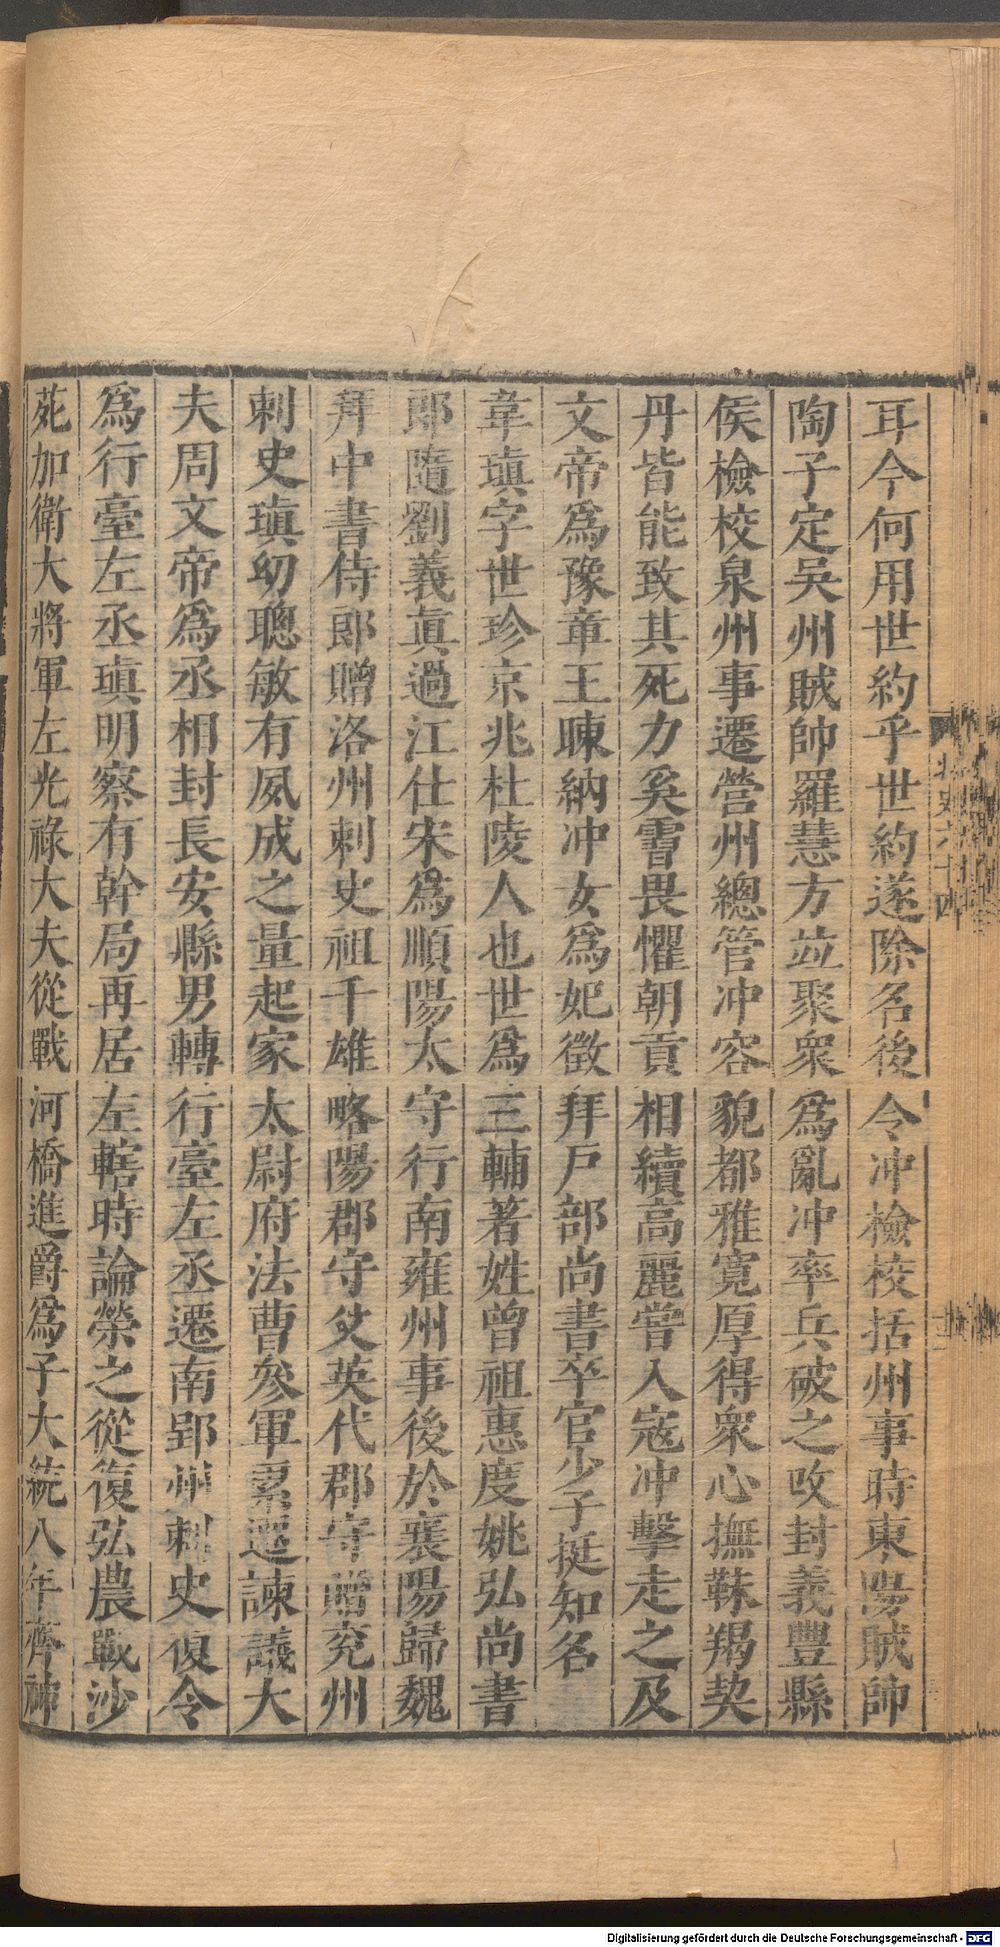 耳今何用世約乎世約遂除名後令冲檢校括州事時東陽賊帥
陶子定吳州賊帥羅慧方竝聚衆爲亂冲率兵破之攺封義豐縣
侯檢校泉州事遷營州總管冲容貌都雅寛厚得衆心撫靺羯契
丹皆能致其死力奚霫畏懼朝貢相續高麗嘗入寇冲擊走之及
文帝爲豫章王暕納冲女爲妃徵拜戸部尚書卒官少子挺知名
韋瑱字世珍京兆杜陵人也世爲三輔著姓曾祖惠度姚弘尚書
郎隨劉義眞過江仕宋爲順陽太守行南雍州事後於襄陽歸魏
拜中書侍郎贈洛州刺史祖千雄略陽郡守父英代郡守贈兖州
刺史瑱幼聰敏有夙成之量起家太尉府法曹叅軍累遷諫議大
夫周文帝爲丞相封長安縣男轉行臺左丞遷南郢州刺史復令
爲行臺左丞瑱明察有幹局再居左轄時論榮之從復弘農戰沙
苑加衛大將軍左光祿大夫從戰河橋進爵爲子大統八年齊神
北史六十四
Digitalisierung gefördert durch die Deutsche Forschungsgemeinschaft - DFG